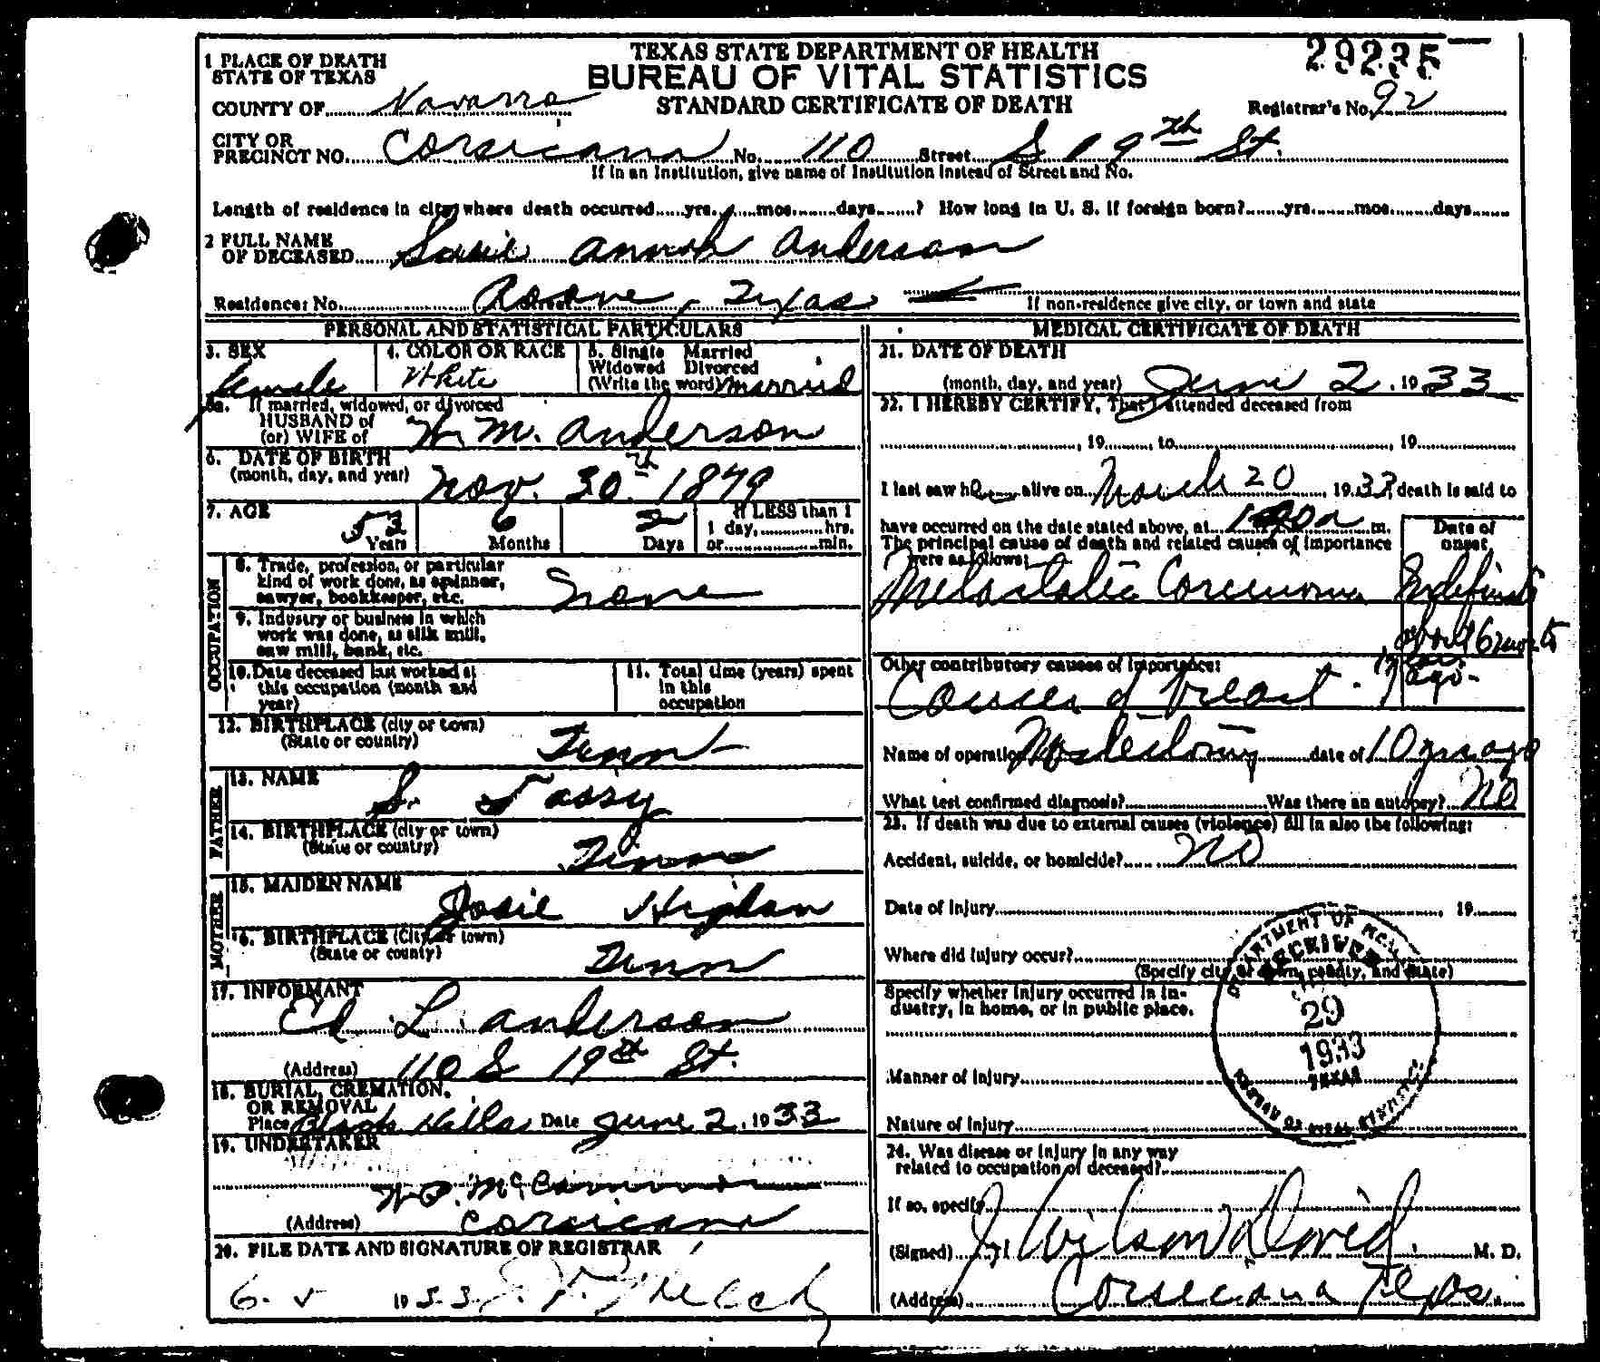 29235
1 PLACE OF DEATH
STATE OF TEXAS
TEXAS STATE DEPARTMENT OF HEALTH
BUREAU OF VITAL STATISTICS
STANDARD CERTIFICATE OF DEATH
COUNTY OF Navarro
Registrar's No. 92
CITY OR
PRECINCT NO. Corsicana No. 110 Street S 19th St.
If in an Institution, give name of Institution instead of Street and No.
Length of residence in city where death occurred yrs. mos. days ? How long in U. S. if foreign born? yrs. mos. days
2 FULL NAME
OF DECEASED Annah Anderson
Residence: No. Street Roane, Texas
If non-residence give city, or town and state
PERSONAL AND STATISTICAL PARTICULARS
3. SEX
female
4. COLOR OR RACE
White
5. Single Married
Widowed Divorced
(Write the word) married
5a. If married, widowed, or divorced
HUSBAND of
(or) WIFE of W. M. Anderson
6. DATE OF BIRTH
(month, day, and year) Nov. 30th 1879
7. AGE
53 Years
6 Months
2 Days
If LESS than 1
1 day, hrs.
or min.
OCCUPATION
8. Trade, profession, or particular
kind of work done, as spinner,
sawyer, bookkeeper, etc. None
9. Industry or business in which
work was done, as silk mill,
saw mill, bank, etc.
10. Date deceased last worked at
this occupation (month and
year)
11. Total time (years) spent
in this
occupation
12. BIRTHPLACE (city or town)
(State or country) Tenn
FATHER
13. NAME
S.
14. BIRTHPLACE (city or town)
(State or country) Tenn
MOTHER
15. MAIDEN NAME
Josie
16. BIRTHPLACE (City or town)
(State or county) Tenn
17. INFORMANT
Ed L. Anderson
(Address) 110 S 19th St.
18. BURIAL, CREMATION,
OR REMOVAL
Place Black Hills Date June 2, 1933
19. UNDERTAKER
(Address) Corsicana
20. FILE DATE AND SIGNATURE OF REGISTRAR
1933
MEDICAL CERTIFICATE OF DEATH
21. DATE OF DEATH
(month, day, and year) June 2, 1933
22. I HEREBY CERTIFY, That I attended deceased from
, 19 , to , 19
I last saw h alive on March 20, 1933, death is said to
have occurred on the date stated above, at m.
The principal cause of death and related causes of importance
were as follows:
Date of
onset
Metastatic Carcinoma
about 6 months
ago
Other contributory causes of importance:
of Breast
Name of operation date of 10 yrs ago
What test confirmed diagnosis? Was there an autopsy? No
23. If death was due to external causes (violence) fill in also the following:
Accident, suicide, or homicide? No
Date of injury , 19
Where did injury occur?
(Specify city or town, county, and state)
Specify whether injury occurred in in-
dustry, in home, or in public place.
Manner of injury
Nature of injury
RECEIVED
29
1933
TEXAS
24. Was disease or injury in any way
related to occupation of deceased?
If so, specify
(Signed) J. Wilson David M. D.
(Address) Corsicana Texas.